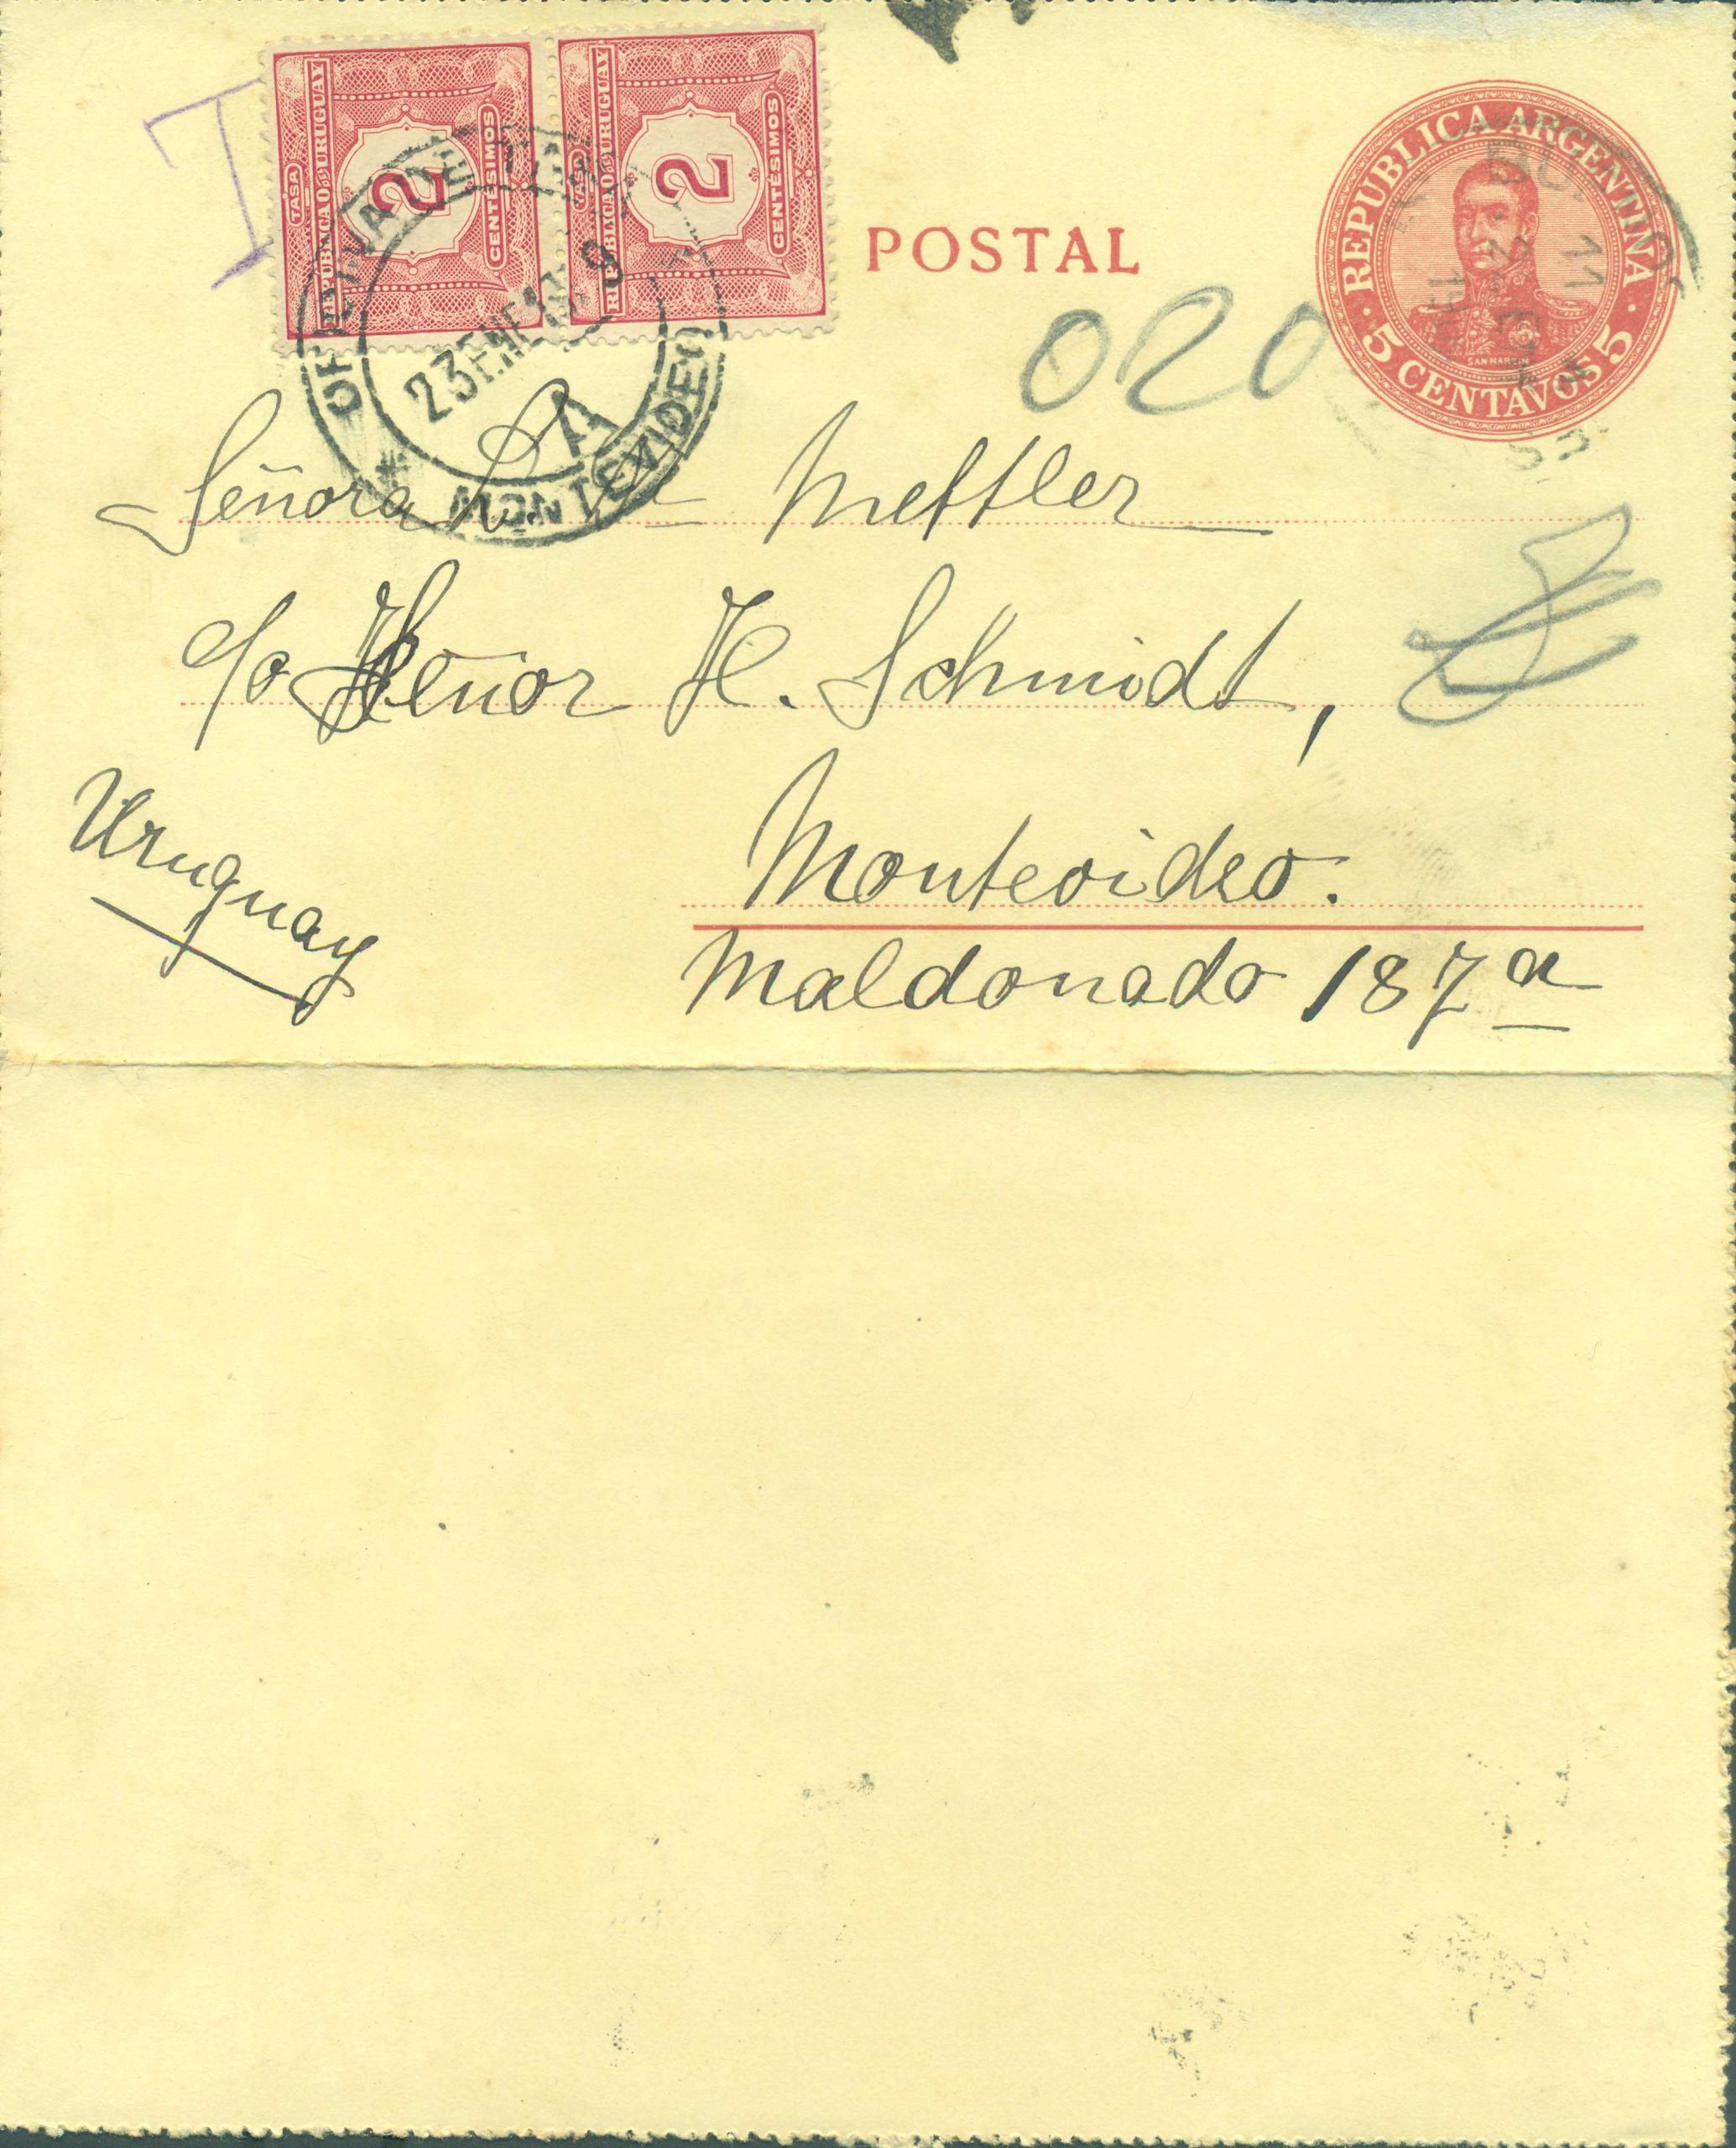 T
TASA
REPUBLICA O. DEL URUGUAY
2
CENTESIMOS
TASA
REPUBLICA O. DEL URUGUAY
2
CENTESIMOS
OFICINA DE
23 ENE
9
A
MONTEVIDEO
POSTAL
REPUBLICA ARGENTINA
SAN MARTIN
5 CENTAVOS 5
11
020
Señora Mettler
c/o Señor H. Schmidt,
Uruguay
Montevideo.
Maldonado 187a